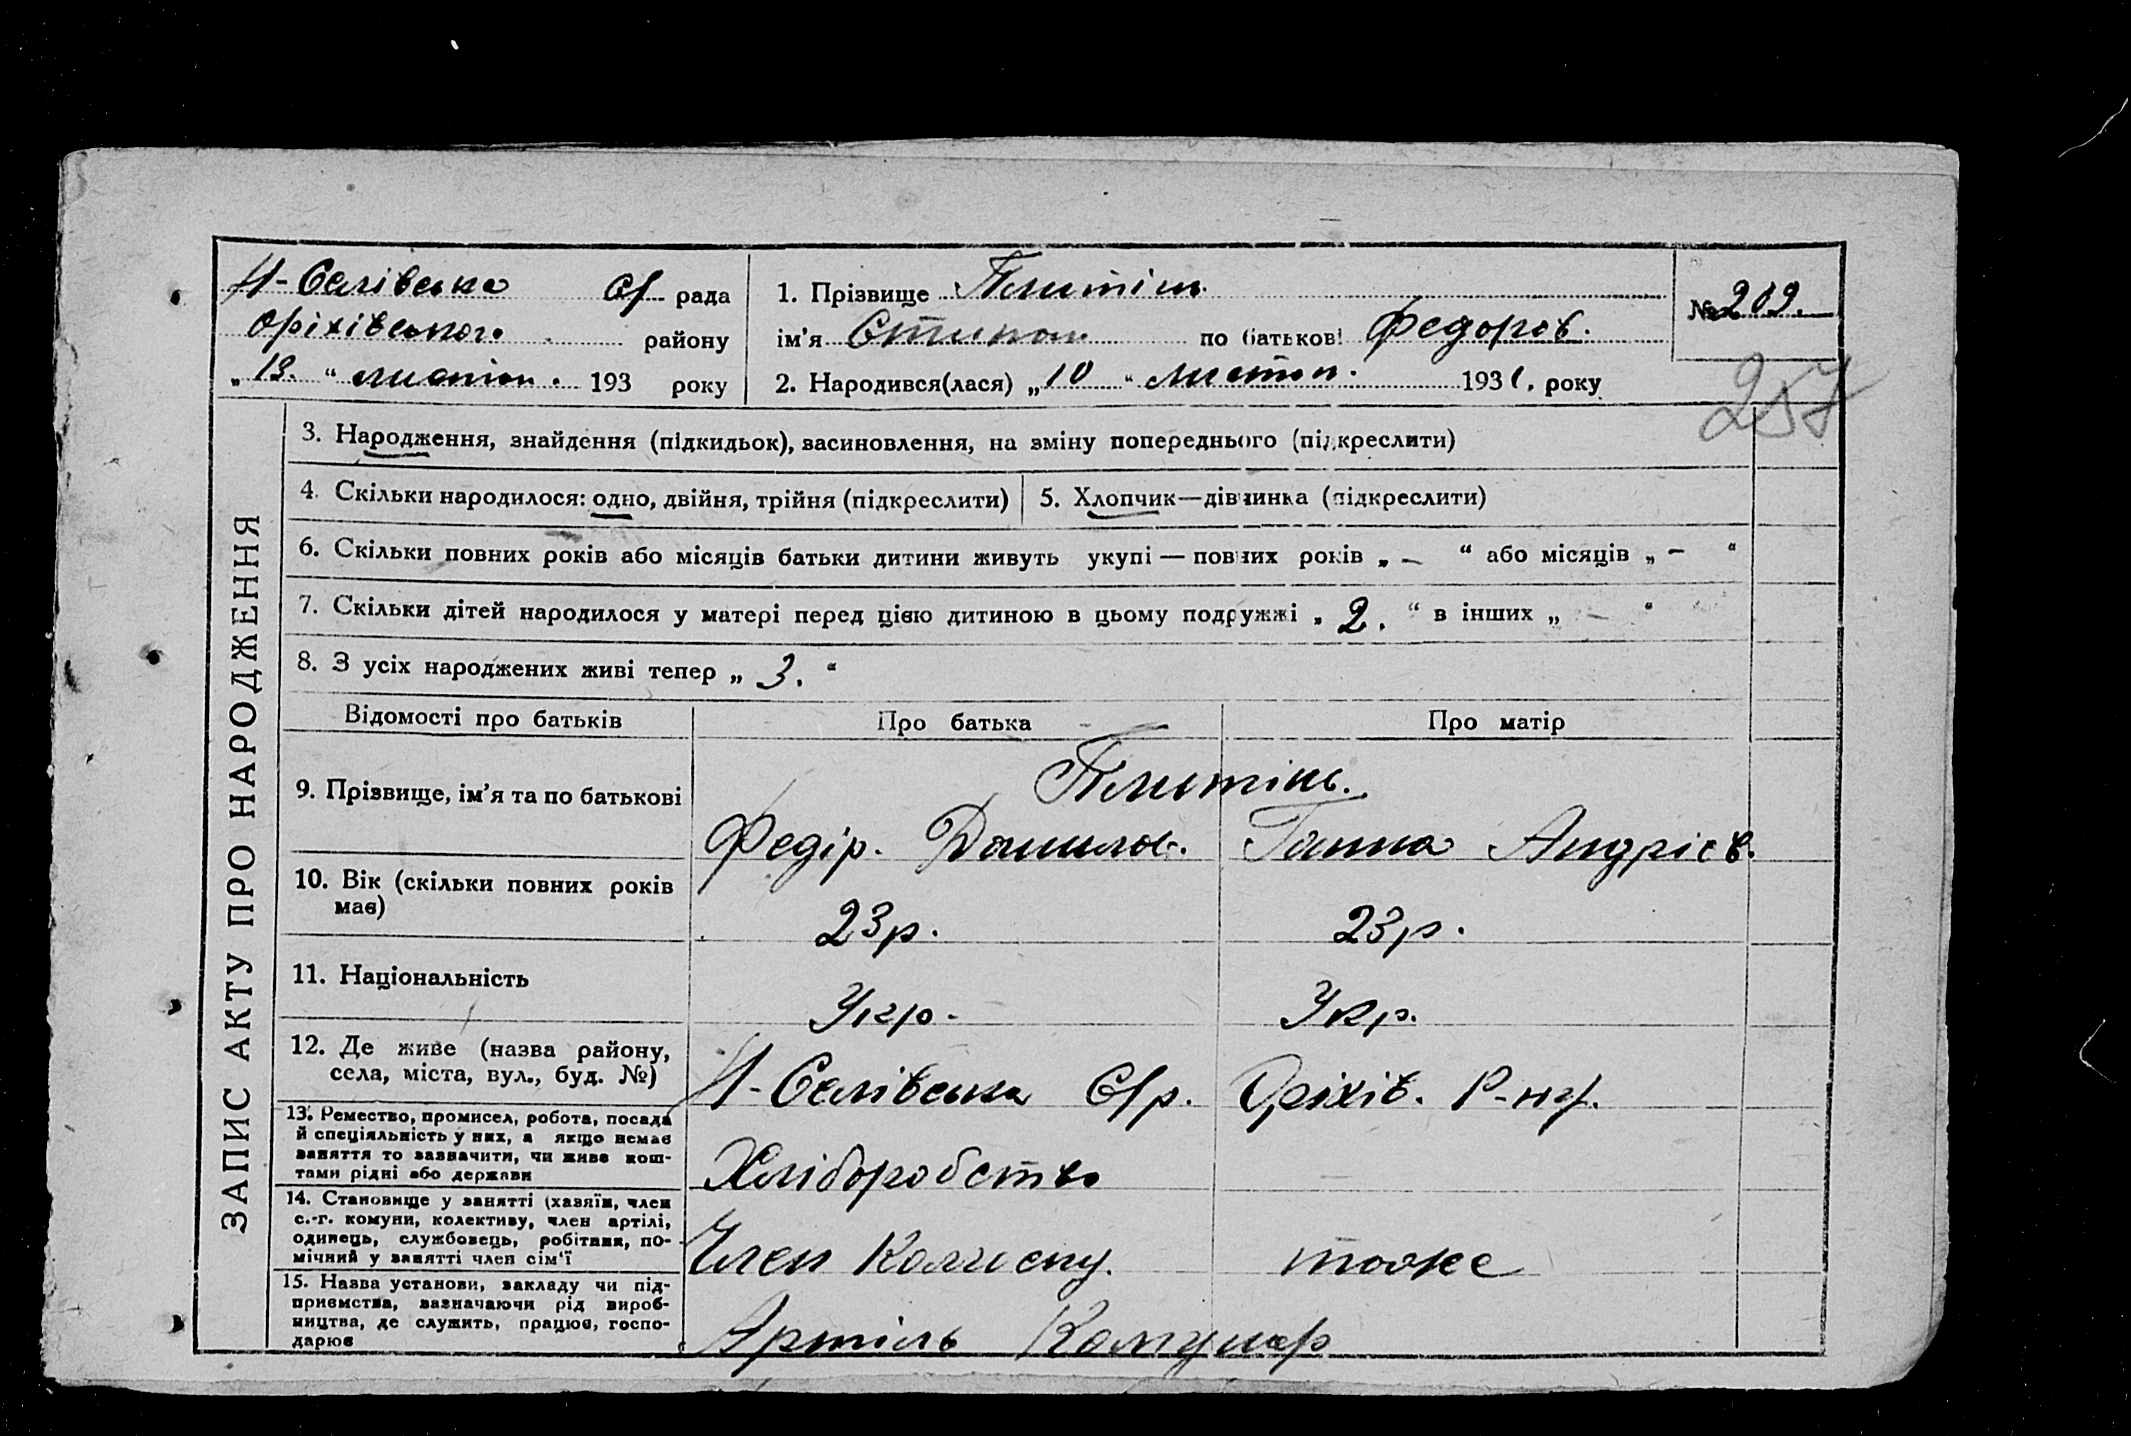 Н-Селівська с/ рада
Оріхівського району
„13.“ листоп. 193 року
1. Прізвище Плитінь
ім'я Степан по батькові Федоров.
2. Народився(лася) „10“ Листоп. 1931. року
№ 209.
257
ЗАПИС АКТУ ПРО НАРОДЖЕННЯ
3. Народження, знайдення (підкидьок), васиновлення, на зміну попереднього (підкреслити)
4. Скільки народилося: одно, двійня, трійня (підкреслити) 5. Хлопчик—дівчинка (підкреслити)
6. Скільки повних років або місяців батьки дитини живуть укупі — повних років „ – “ або місяців „ – “
7. Скільки дітей народилося у матері перед цією дитиною в цьому подружжі „ 2. “ в інших „ – “
8. З усіх народжених живі тепер „ 3. “
Відомості про батьків Про батька Про матір
9. Прізвище, ім'я та по батькові
Плитінь.
Федір. Данилов. Ганна Андрієв.
10. Вік (скільки повних років
має)
23р. 23р.
11. Національність
Укр. Укр.
12. Де живе (назва району,
села, міста, вул., буд. №)
Н-Селівська С/р. Оріхів. Р-ну.
13. Ремество, промисел, робота, посада
й спеціяльність у них, а якщо немає
заняття то зазначити, чи живе кош-
тами рідні або держави
Хліборобство
14. Становище у занятті (хазяїн, член
с.-г. комуни, колективу, член артілі,
одинець, службовець, робітник, по-
мічний у занятті член сім'ї
Член Колгоспу. тоже
15. Назва установи, закладу чи під-
приємства, зазначаючи рід вироб-
ництва, де служить, працює, госпо-
дарює
Артіль Комунар